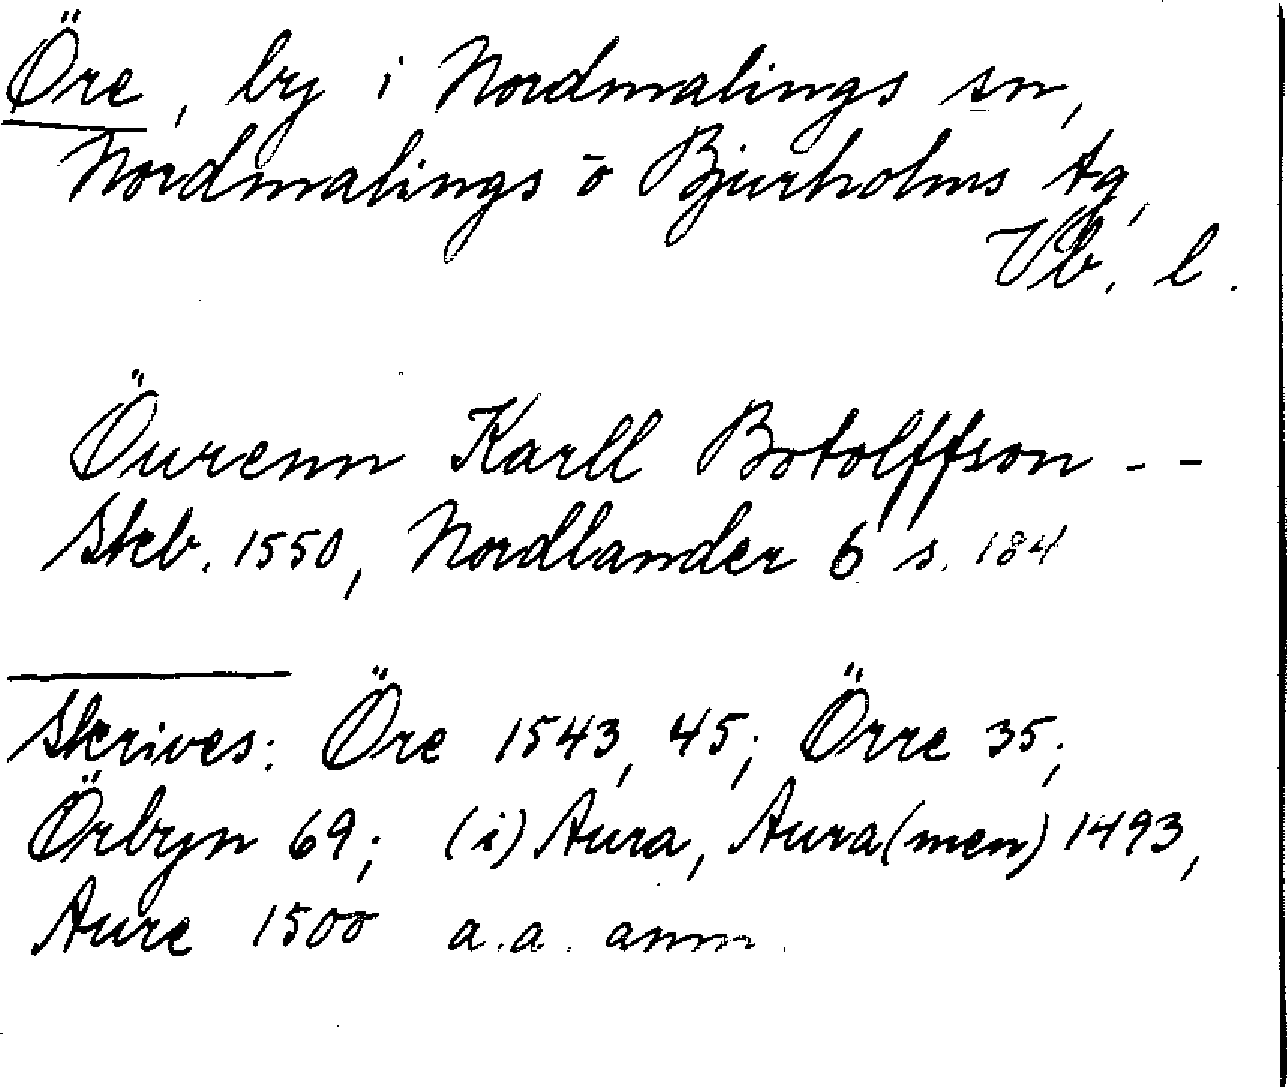 Öre, by i Nordmalings sn,
Nordmalings o Bjurholms tg,
Vb. l.
Öurenn Karll Botolffson - -
Skeb. 1550, Nordlander 6 s. 184
Skrives: Öre 1543, 45; Örre 35;
Örbyn 69; (i) Aura, Aura(men) 1493,
Aure 1500 a.a. anm.